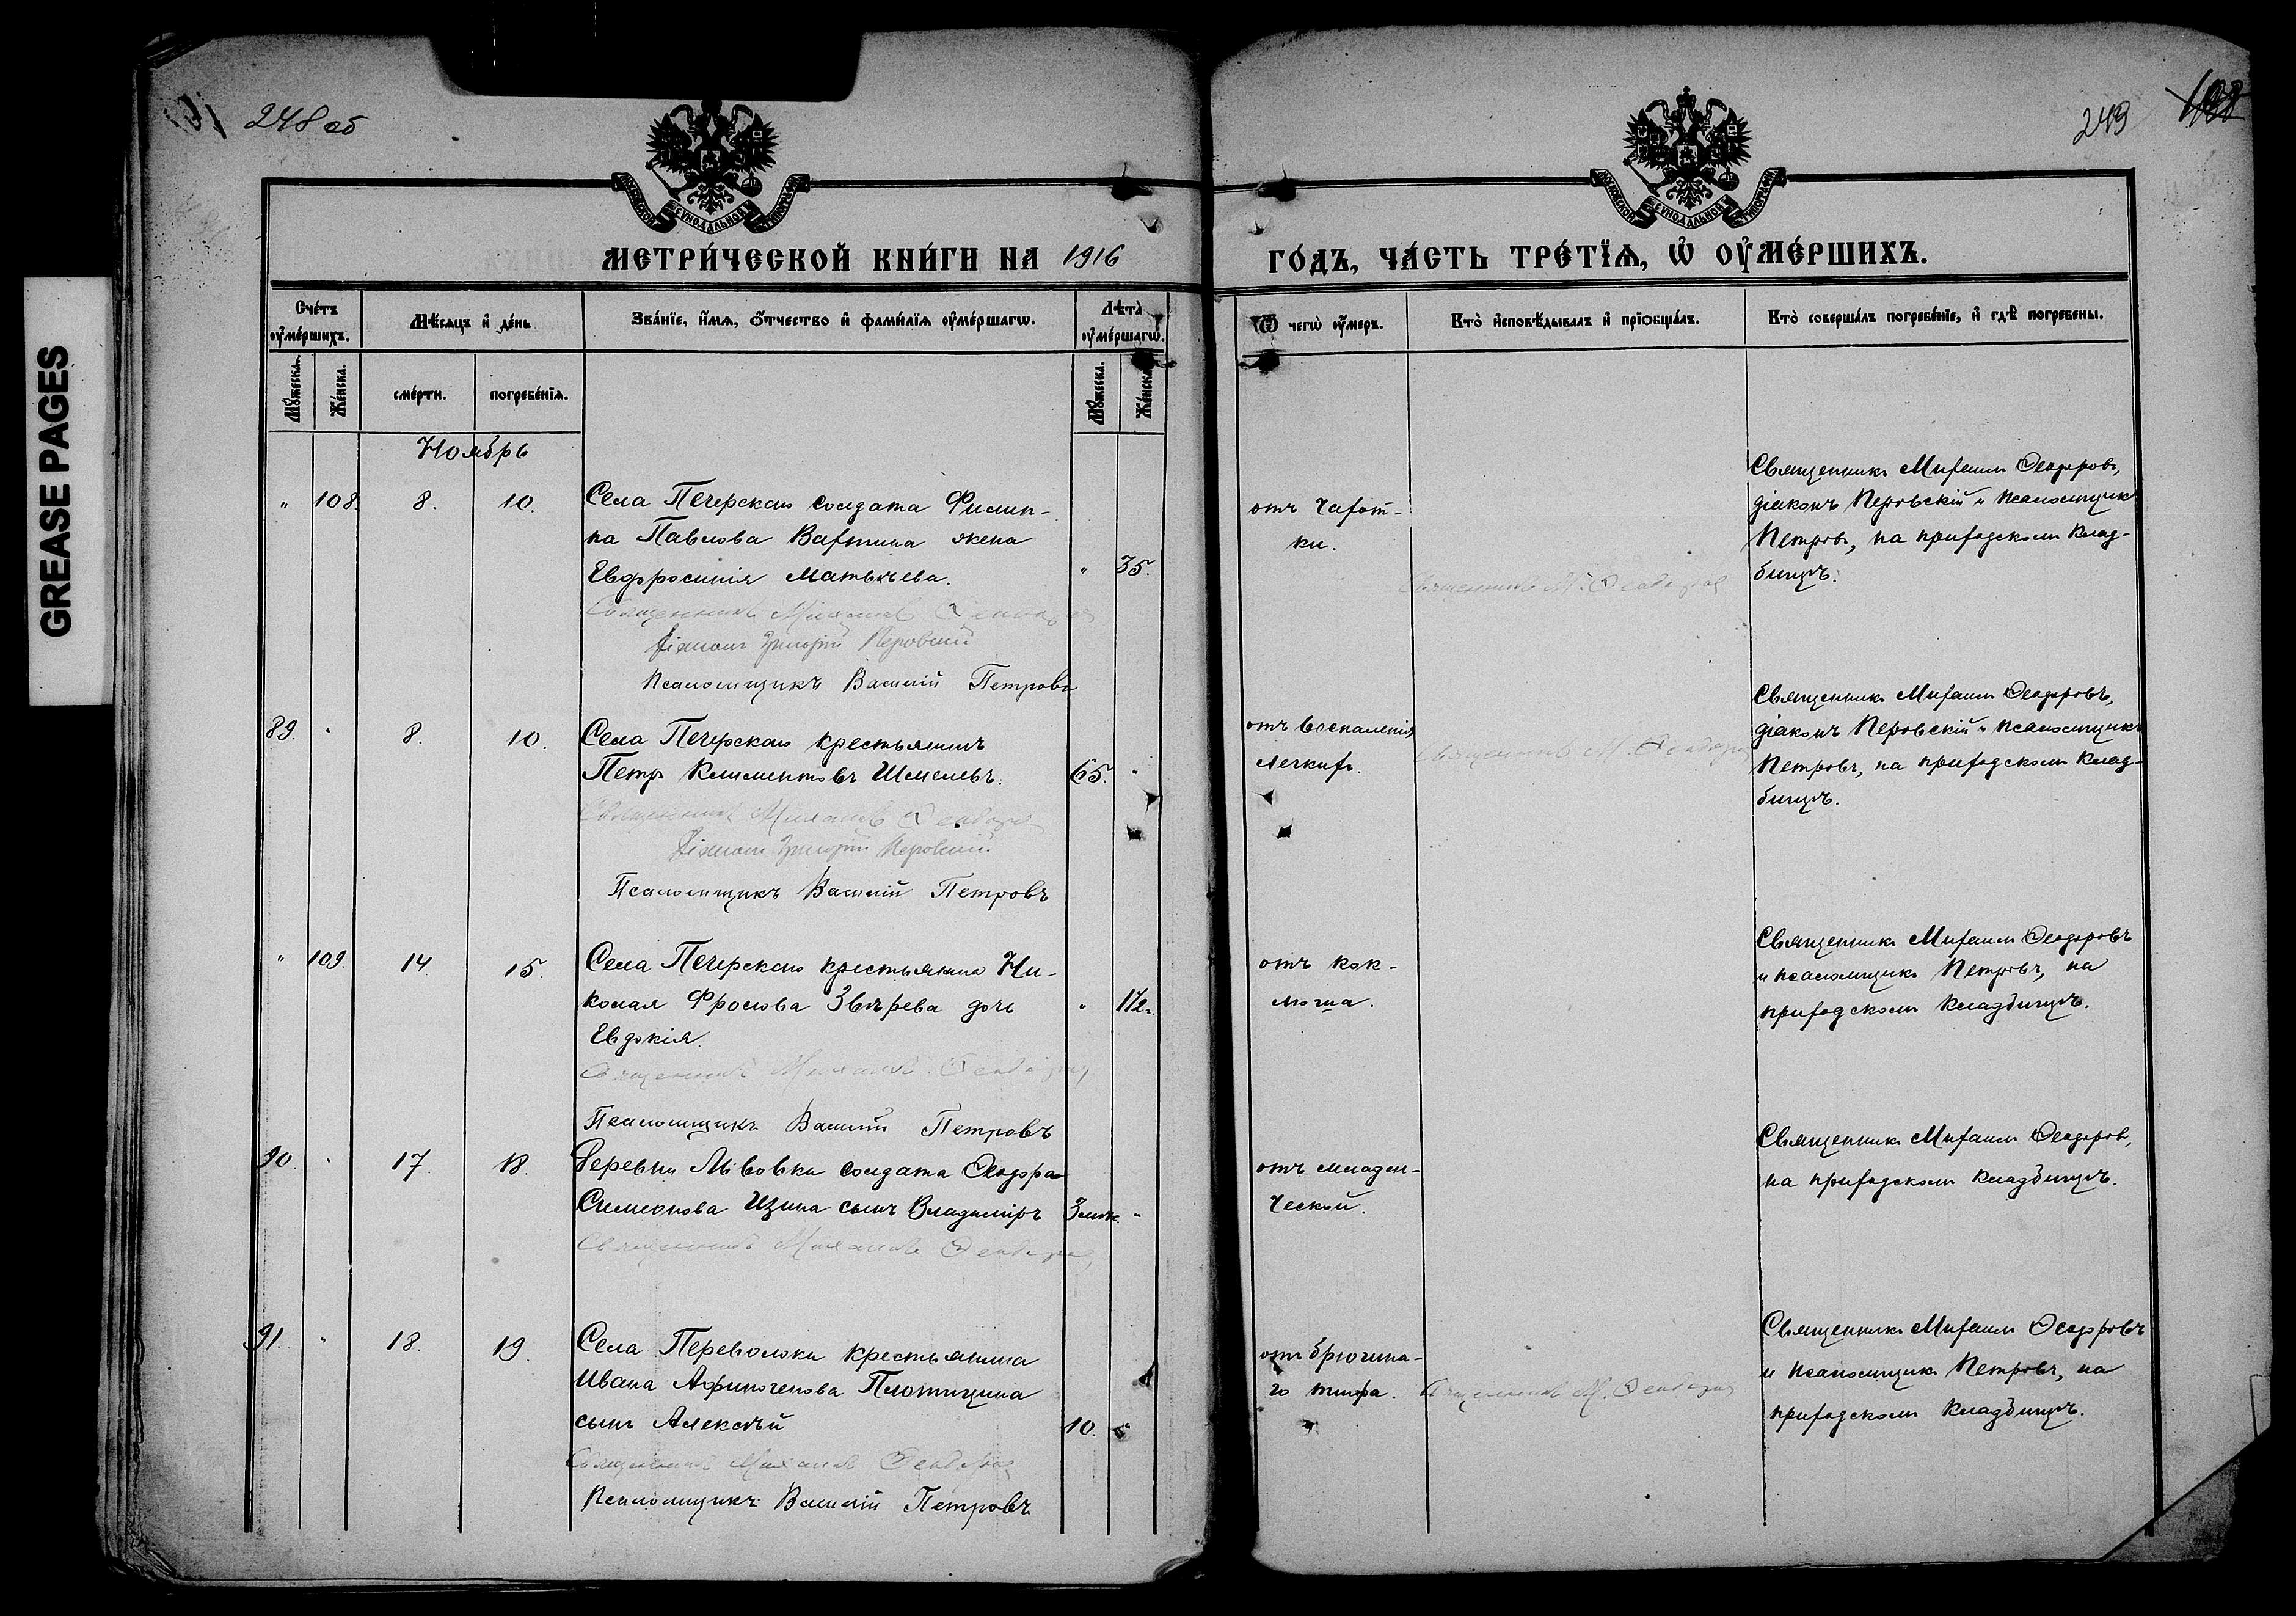 GREASE PAGES
248 об
249
МЕТРИ́ЧЕСКОЙ КНИ́ГИ НА 1916
ГО́ДЪ, ЧА́СТЬ ТРЕ́ТЇѦ, Ѡ҆ ОУ҆МЕ́РШИХЪ.
Сче́тъ оу҆ме́ршихъ.
Мѣ́сяцъ и҆ де́нь
Зва́нїе, и҆́мѧ, ѻ҆́тчество и҆ фами́лїѧ оу҆ме́ршагѡ.
Лѣ́та оу҆ме́ршагѡ.
Ѿ чегѡ̀ оу҆́меръ.
Кто̀ и҆сповѣ́дывалъ и҆ прїѡбща́лъ.
Кто̀ соверша́лъ погребе́нїе, и҆ гдѣ̀ погребены.
Мꙋ́жеска.
Же́нска.
сме́рти.
погребе́нїѧ.
Мꙋ́жеска.
Же́нска.
Ноябрь
" 108. 8. 10.
Села Печерскаго солдата Филип-
па Павлова Вахтина жена
Евфросинія Матвѣева. " 35.
Священникъ Михаилъ Ѳеодоровъ
Діаконъ Григорій Перовскій
Псаломщикъ Василій Петровъ
отъ Чахот-
ки.
Священникъ М. Ѳеодоровъ
Священникъ Михаилъ Ѳеодоровъ,
діаконъ Перовскій и псаломщикъ
Петровъ, на приходскомъ клад-
бищѣ.
89. " 8. 10.
Села Печерскаго крестьянинъ
Петръ Климентовъ Шмелевъ. 65. "
Священникъ Михаилъ Ѳеодоровъ
Діаконъ Григорій Перовскій
Псаломщикъ Василій Петровъ
отъ воспаленія
легкихъ.
Священникъ М. Ѳеодоровъ
Священникъ Михаилъ Ѳеодоровъ,
діаконъ Перовскій и псаломщикъ
Петровъ, на приходскомъ клад-
бищѣ.
" 109. 14. 15.
Села Печерскаго крестьянина Ни-
колая Фролова Звѣрева дочь " 1½ г.
Евдокія.
Священникъ Михаилъ Ѳеодоровъ
Псаломщикъ Василій Петровъ
отъ кок-
люша.
Священникъ Михаилъ Ѳеодоровъ
и псаломщикъ Петровъ, на
приходскомъ кладбищѣ.
90. " 17. 18.
Деревни Львовки солдата Ѳеодора
Симеонова Изина сынъ Владиміръ 3 мѣс. "
Священникъ Михаилъ Ѳеодоровъ
отъ младен-
ческой.
Священникъ Михаилъ Ѳеодоровъ,
на приходскомъ кладбищѣ.
91. " 18. 19.
Села Переволоки крестьянина
Ивана Афиногенова Плотицина
сынъ Алексѣй 10. "
Священникъ Михаилъ Ѳеодоровъ
Псаломщикъ Василій Петровъ
отъ брюшна-
го тифа.
Священникъ М. Ѳеодоровъ
Священникъ Михаилъ Ѳеодоровъ
и псаломщикъ Петровъ, на
приходскомъ кладбищѣ.